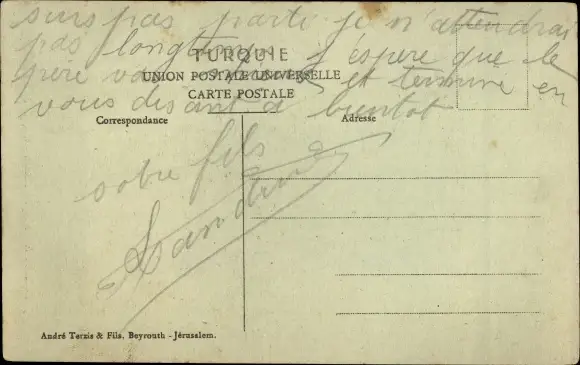 suis pas parti je n'attendrai
pas longtemps j'espere que le
TURQUIE
pere va et termine en
UNION POSTALE UNIVERSELLE
CARTE POSTALE
vous disant a bientot
Correspondance
Adresse
votre fils
André Terzis & Fils, Beyrouth - Jérusalem.